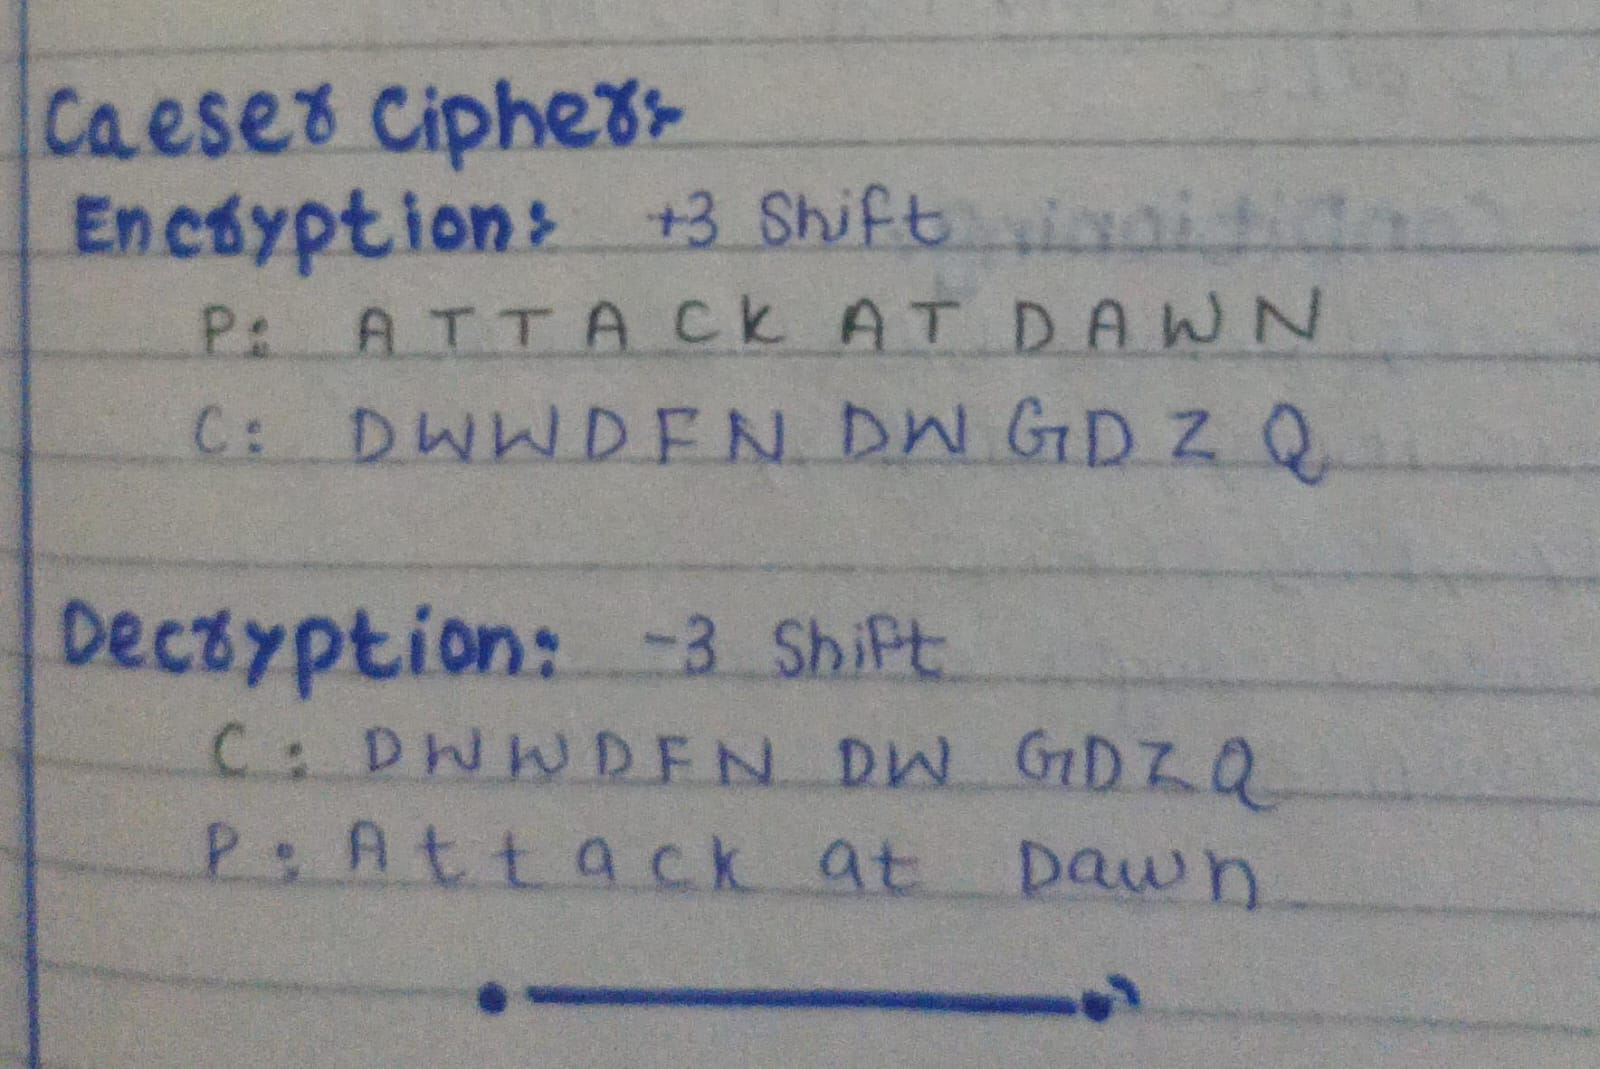 Caeser Cipher:-
Encryption:- +3 Shift
P: A T T A C K A T D A W N
C: D W W D F N D W G D Z Q
Decryption: -3 Shift
C: D W W D F N D W G D Z Q
P: A t t a c k at Dawn